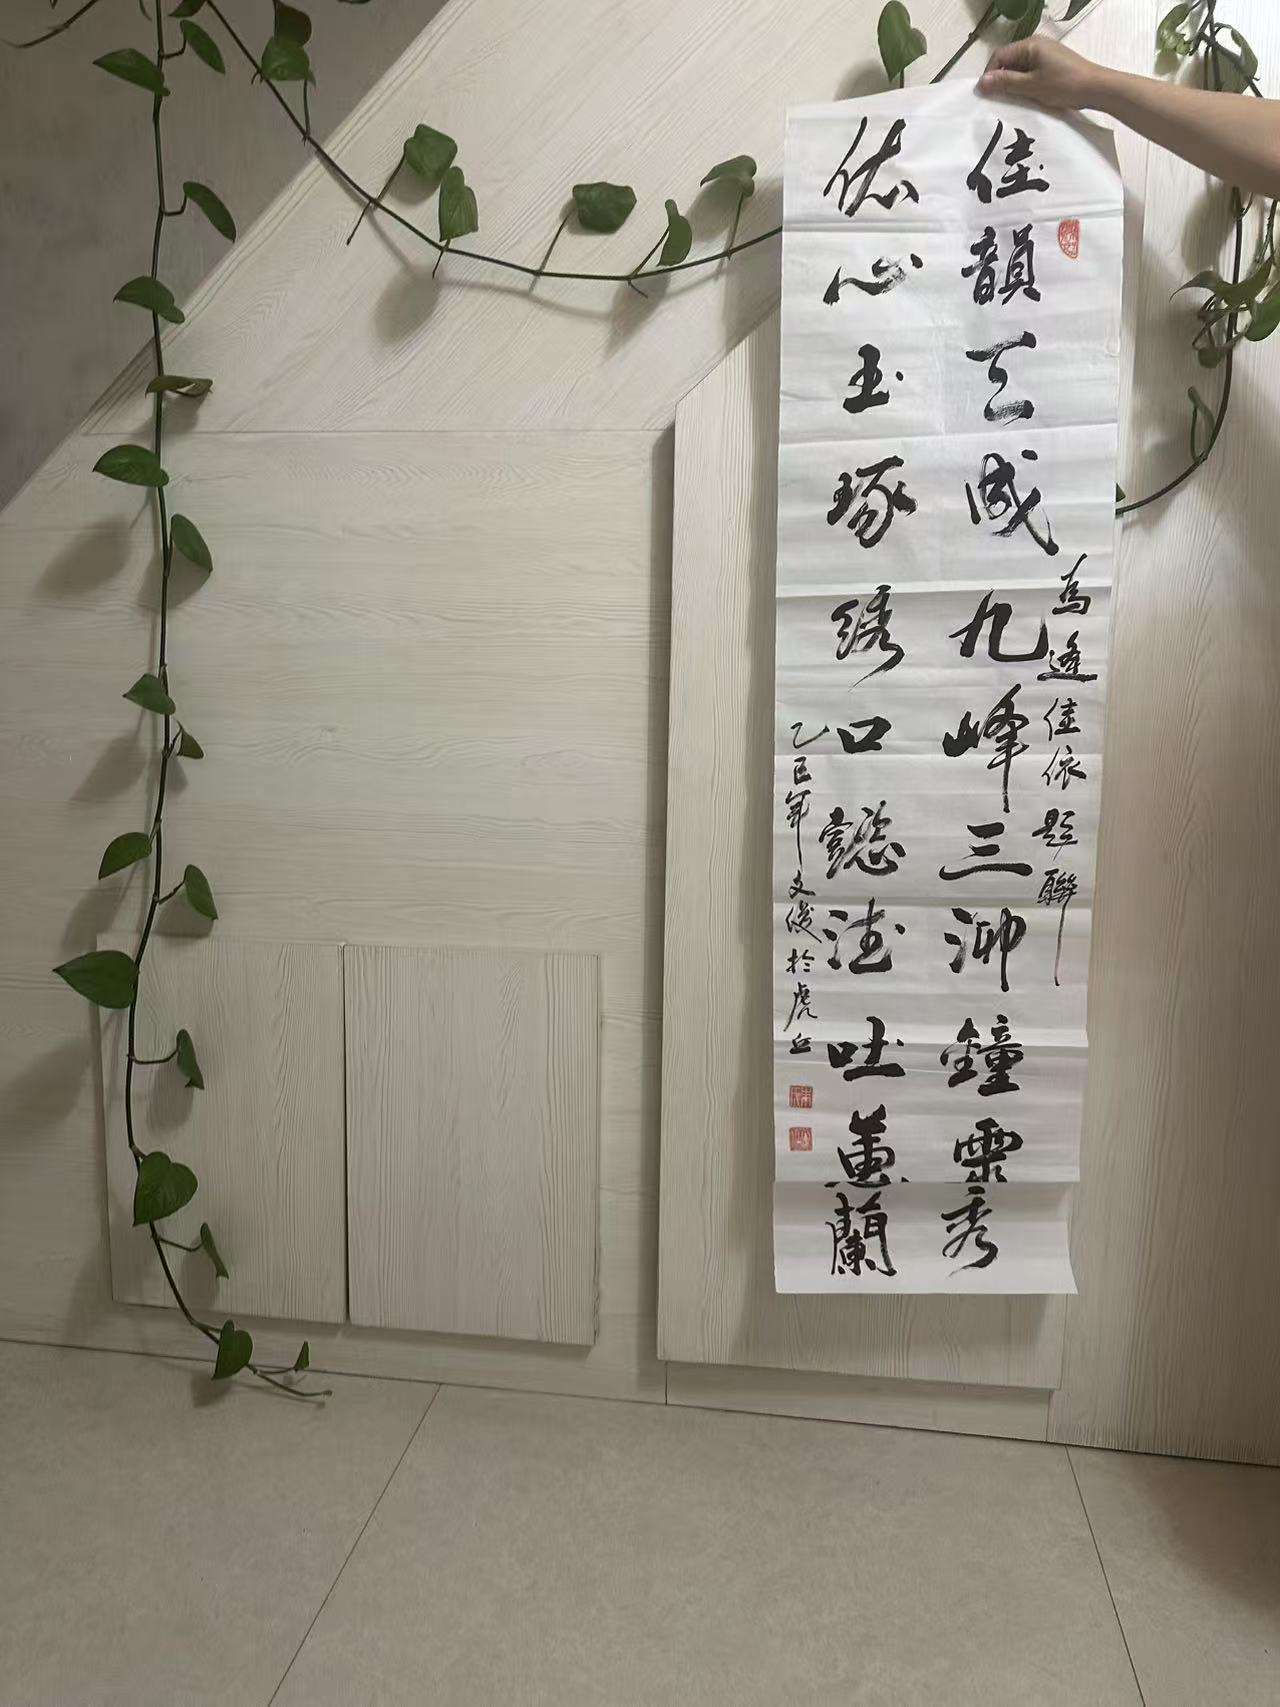 為逢佳依題聯
佳韻天成九峰三泖鐘靈秀
依心玉琢绣口懿德吐蕙蘭
乙巳年文俊於虎丘